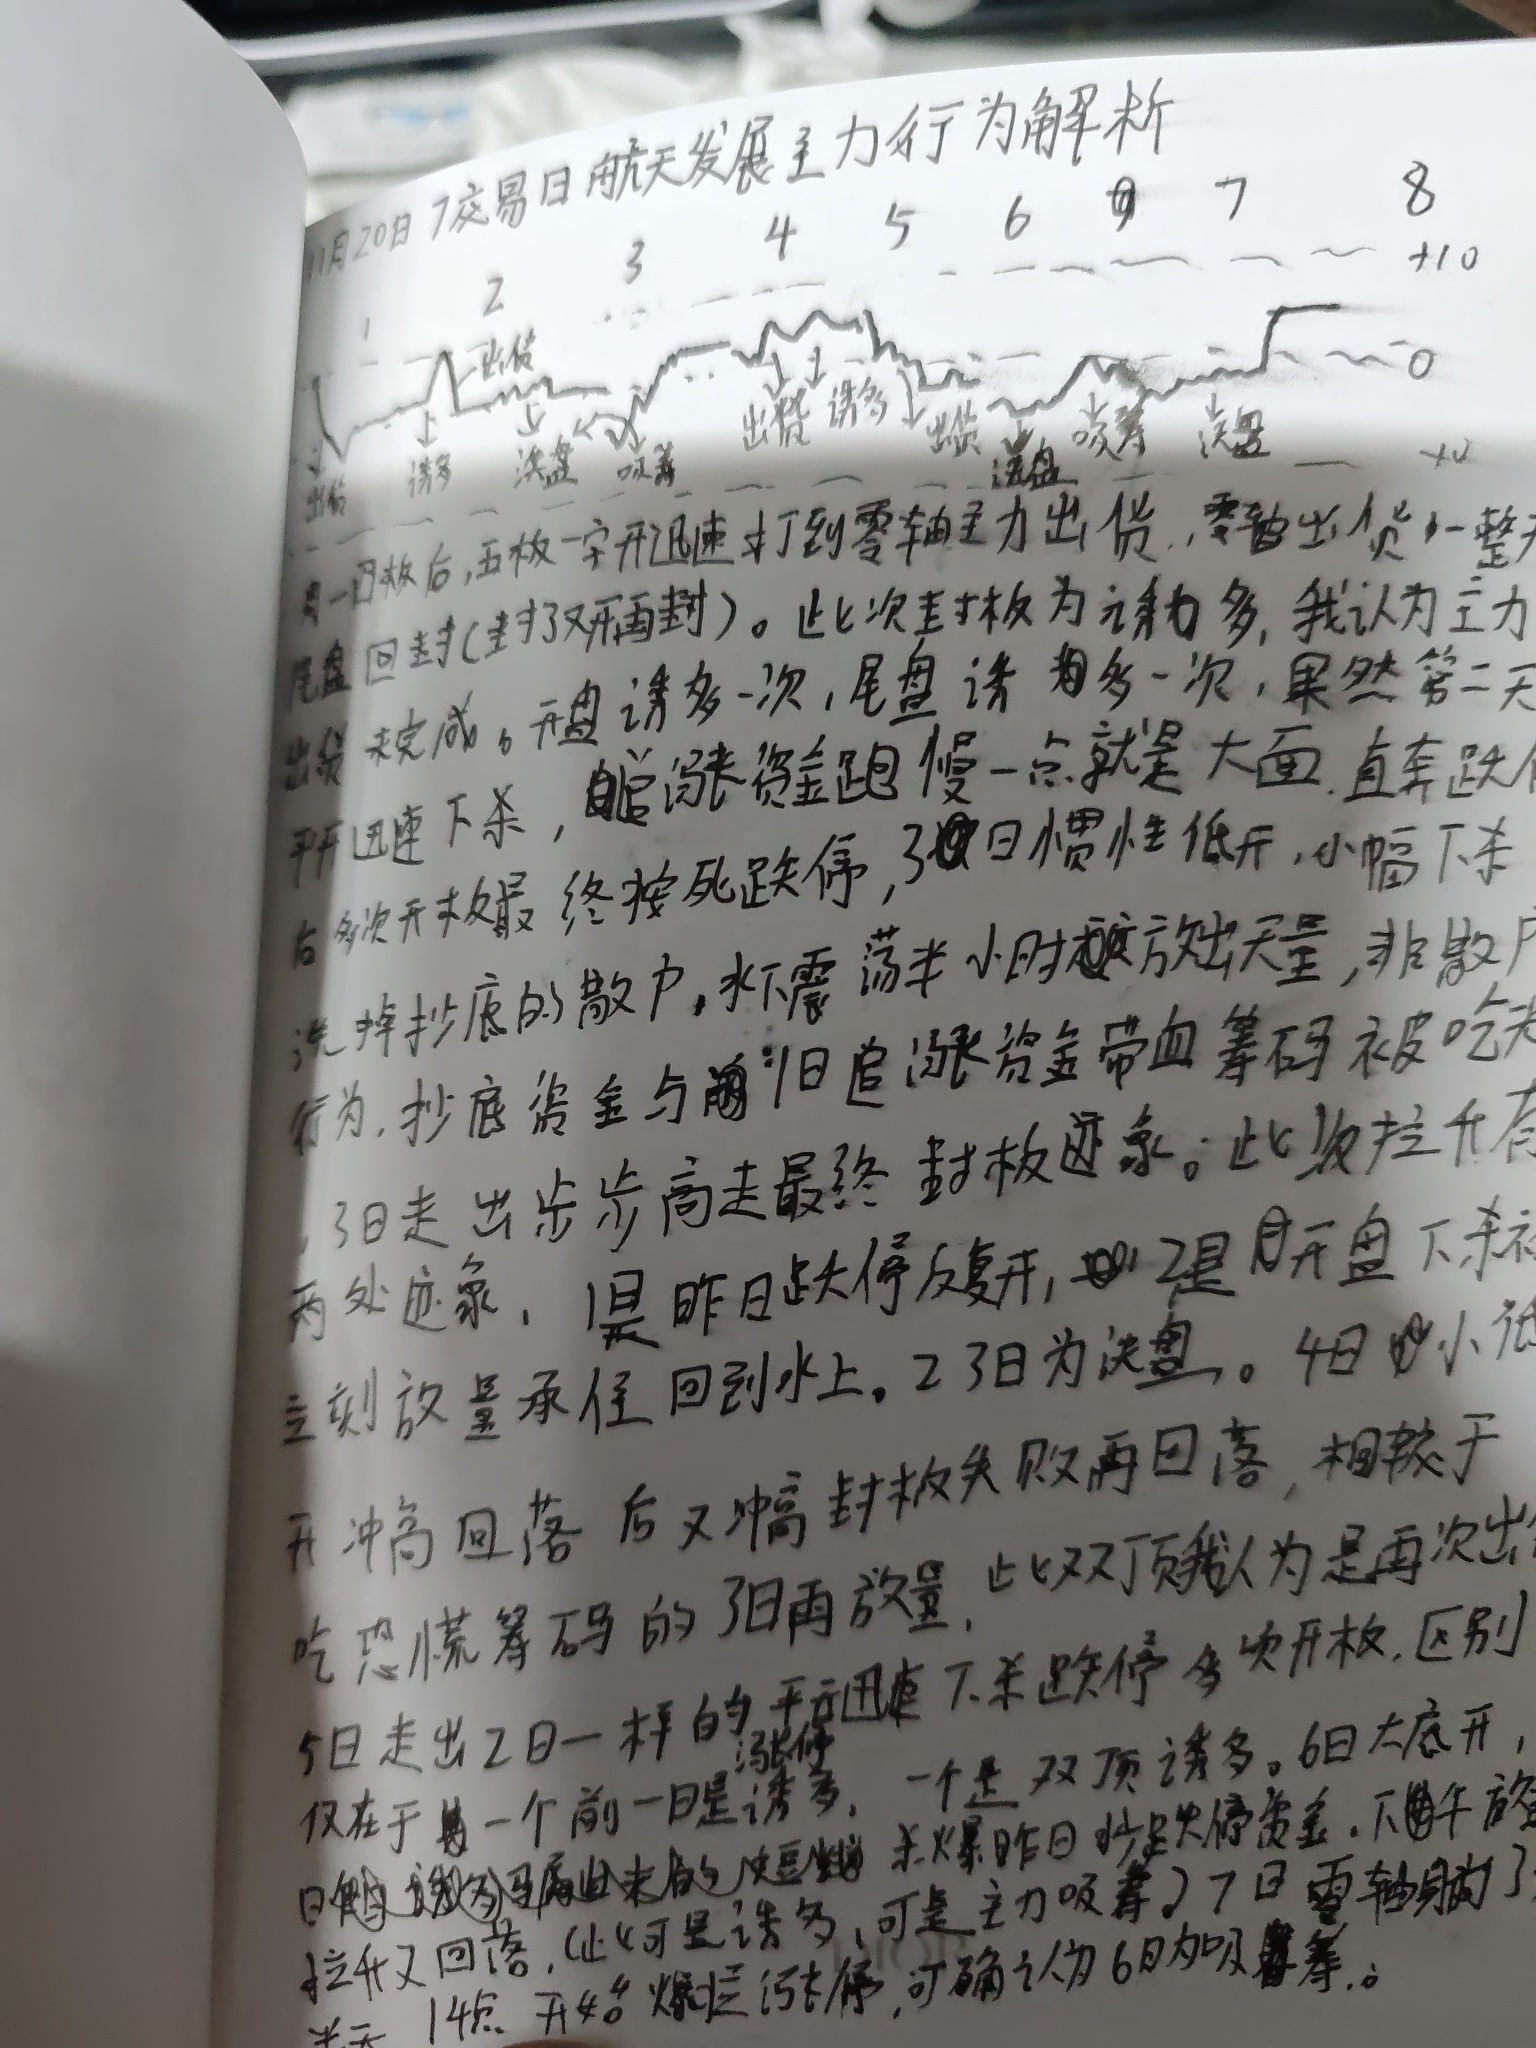 11月20日 7交易日航天发展主力行为解析
1 2 3 4 5 6 7 8
+10
出货
0
出货 诱多 洗盘 吸筹 出货 诱多 出货 洗盘 吸筹 洗盘
一日四板后,五板一字开迅速打到零轴主力出货,零轴出货一整天
尾盘回封(封了又开再封)。此次封板为诱多,我认为主力
出货未完成。开盘诱多一次,尾盘诱多一次,果然第二天
平开迅速下杀,追涨资金跑慢一点就是大面.直奔跌停
后多次开板最终按死跌停,3日惯性低开,小幅下杀
洗掉抄底的散户,水下震荡半小时放出天量,非散户
行为.抄底资金与前1日追涨资金带血筹码被吃
,3日走出步步高走最终封板迹象。此次拉升有
两处迹象,1是昨日跌停反复开,2是开盘下杀被
立刻放量承住回到水上。23日为洗盘。4日小低
开冲高回落后又冲高封板失败再回落,相较于
吃恐慌筹码的3日再放量,此双顶我认为是再次出货
5日走出2日一样的平开迅速下杀跌停多次开板.区别
涨停
仅在于一个前一日是诱多,一个是双顶诱多。6日大底开,
杀爆昨日抄跌停资金.下午放量
拉升又回落.(此可是诱多,可是主力吸筹)7日零轴
半天 14点开始爆拉涨停,可确认为6日为吸筹.。